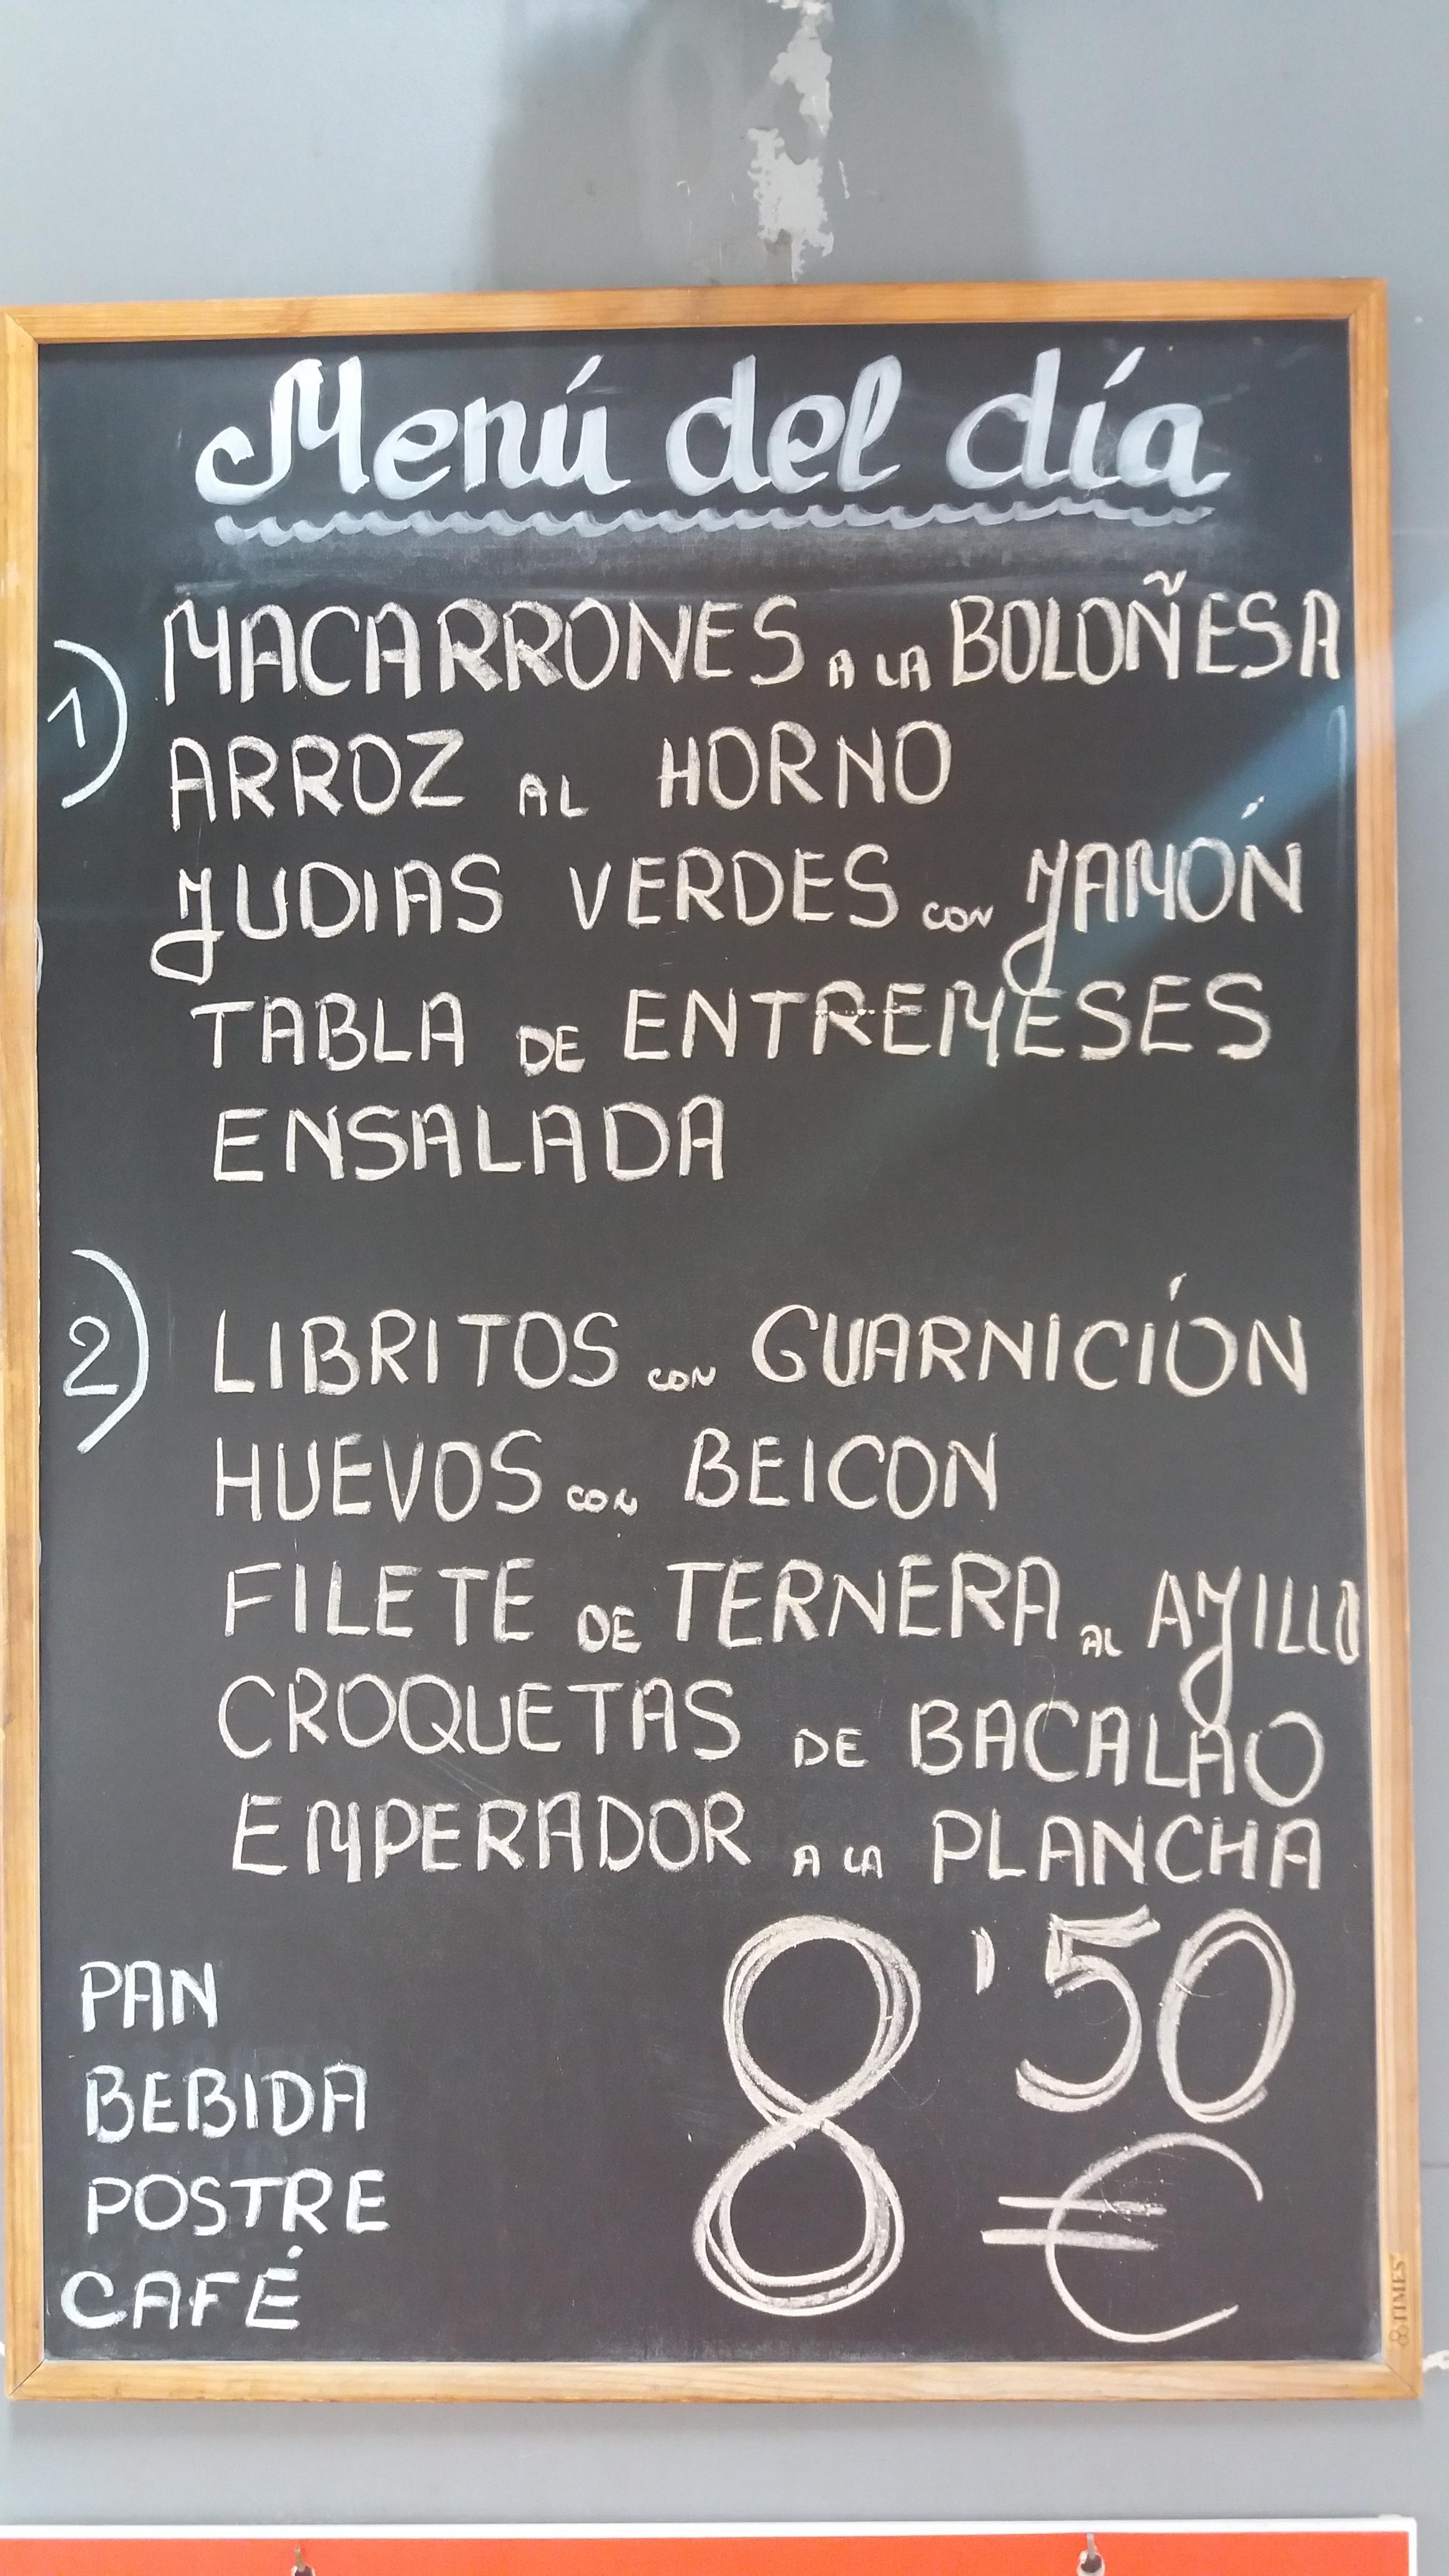 Menú del día
1) MACARRONES A LA BOLOÑESA
ARROZ AL HORNO
JUDIAS VERDES CON JAMÓN
TABLA DE ENTREMESES
ENSALADA
2) LIBRITOS CON GUARNICIÓN
HUEVOS CON BEICON
FILETE DE TERNERA AL AJILLO
CROQUETAS DE BACALAO
EMPERADOR A LA PLANCHA
8'50 €
PAN
BEBIDA
POSTRE
CAFÉ
TIMES